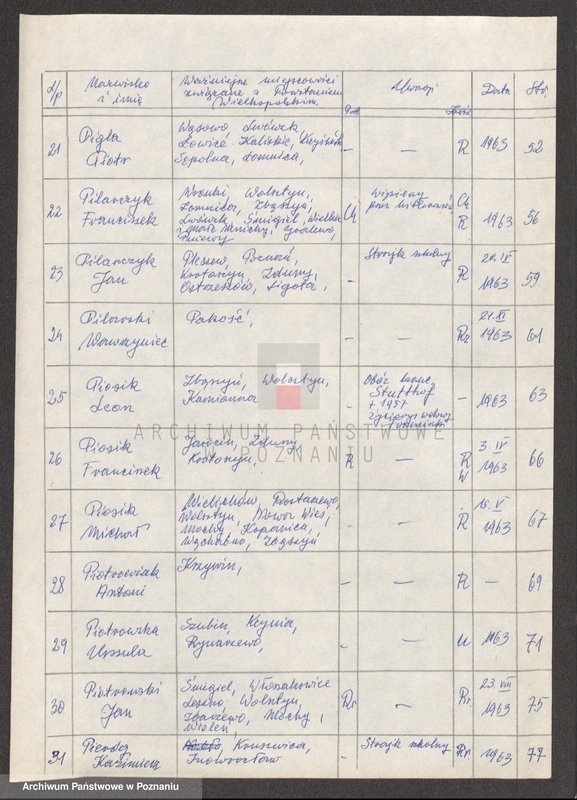 L/p Nazwisko i imię Ważniejsze miejscowości związane z Powstaniem Wielkopolskim. Uwagi Data Str.
21 Pigla Piotr
Wąsowo, Lwówek,
Łowicz Kaliskie,
Szkolna, Łomnica,
- - R 1963 52
22 Pilarczyk Franciszek
Wroniki, Wolsztyn,
Łomnica, Zbąszyń,
Lwówek, Śmigiel, Wielkie
Ch więziony przez hitlerowców Ch R 1963 56
23 Pilarczyk Jan
Pleszew, Poznań,
Krotoszyn, Zduny,
Ostrzeszów, Ligota,
- Strajk szkolny R 20.IX 1963 59
24 Pilarski Wawrzyniec
Pakość,
- - Rz 21.XI 1963 61
25 Piosik Leon
Zbąszyń, Wolsztyn,
Kamionna
- Obóz konc.
Stutthof
+ 1957
- 1963 63
26 Piosik Franciszek
Jarocin, Zduny,
Krotoszyn,
R - R W 3.IV 1963 66
27 Piosik Michał
Wielichowo, Rostarzewo,
Wolsztyn, Nowa Wieś,
Mochy, Kopanica,
Wąchabno, Zbąszyń
- - R 15.V 1963 67
28 Piotrowiak Antoni
Krzywin,
- - R - 69
29 Piotrowska Urszula
Szubin, Kcynia,
Rynarzewo,
- - U 1963 71
30 Piotrowski Jan
Śmigiel, Włoszakowice
Leszno, Wolsztyn,
Zbarzewo, Mochy,
Wieleń,
Rr - Rr. 23.VIII 1963 75
31 Kazimierz
Kruszwica,
Inowrocław
- Strajk szkolny Rr. 1963 77
ARCHIWUM PAŃSTWOWE
W POZNANIU
Archiwum Państwowe w Poznaniu